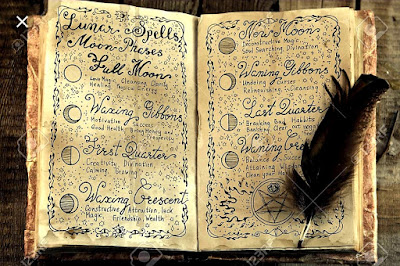 Lunar Spells
Moon Phases
Full Moon
Healing Cleansing Gravity
Health
Waxing Gibbons
Motivation Success
Good Health
First Quarter
Creativity Divination
Calming Growing
Waxing Crescent
Constructive Attraction luck
Magic Friendship Wealth
New Moon
Deconstructive Magic
Soul Searching Divination
Waning Gibbons
Undoing Curses
Relinquishing Cleansing
Last Quarter
Breaking Bad Habits
Banishing
Waning Crescent
Balance
Attaining
123RF